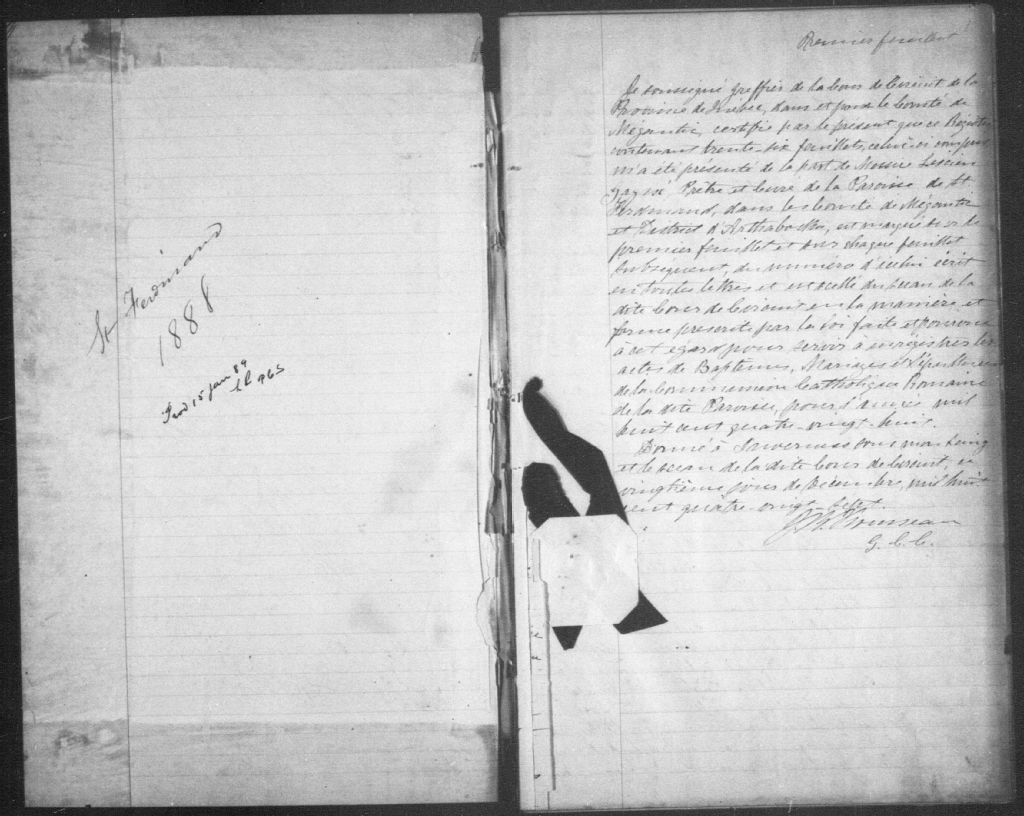 St Ferdinand
1888
Prod 15 jan 89
Premier feuillet
Je soussigné greffier de la Cour de Circuit de la
Province de Québec, dans et pour le Comté de
Mégantic, certifie par le présent que ce Registre
contenant trente-six feuillets, celui-ci compris
m'a été présenté de la part de Messire
Prêtre et Curé de la Paroisse de St.
Ferdinand, dans le Comté de Mégantic
et District d'Arthabaska, est marqué sur le
premier feuillet et sur chaque feuillet
subséquent, du numéro d'icelui écrit
en toutes lettres et est scellé du sceau de la
dite Cour de Circuit en la manière et
forme prescrite par la loi faite et pourvue
à cet égard pour servir à enrégistrer les
actes de Baptêmes, Mariages et Sépultures
de la Communion Catholique Romaine
de la dite Paroisse, pour l'année mil
huit cent quatre-vingt-huit.
Donné à Inverness sous mon seing
et le sceau de la dite Cour de Circuit, ce
vingtième jour de Décembre, mil huit
cent quatre-vingt-sept.
Rousseau
G. C. C.